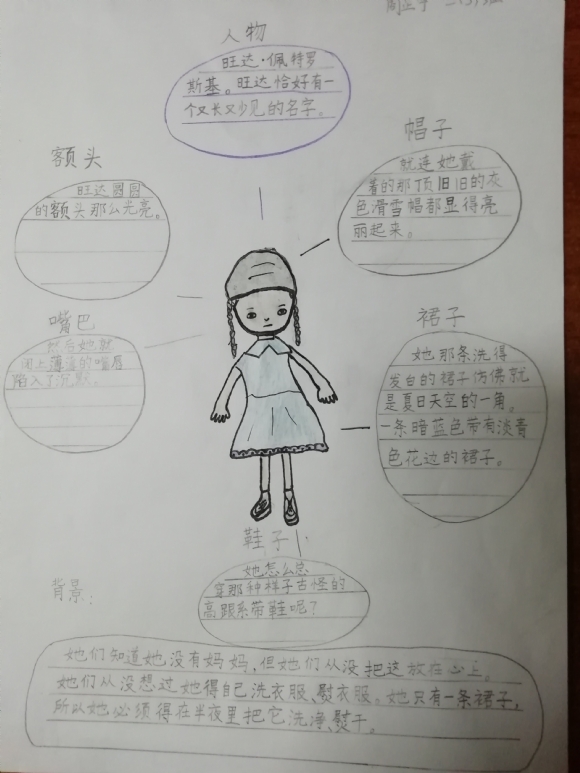 人物
旺达·佩特罗
斯基。旺达恰好有一
个又长又少见的名字。
帽子
就连她戴
着的那顶旧旧的灰
色滑雪帽都显得亮
丽起来。
额头
旺达圆圆
的额头那么光亮。
嘴巴
然后她就
闭上薄薄的嘴唇
陷入了沉默。
裙子
她那条洗得
发白的裙子仿佛就
是夏日天空的一角。
一条暗蓝色带有淡青
色花边的裙子。
鞋子
她怎么总
穿那种样子古怪的
高跟系带鞋呢？
背景：
她们知道她没有妈妈，但她们从没把这放在心上。
她们从没想过她得自己洗衣服、熨衣服。她只有一条裙子，
所以她必须得在半夜里把它洗净、熨干。